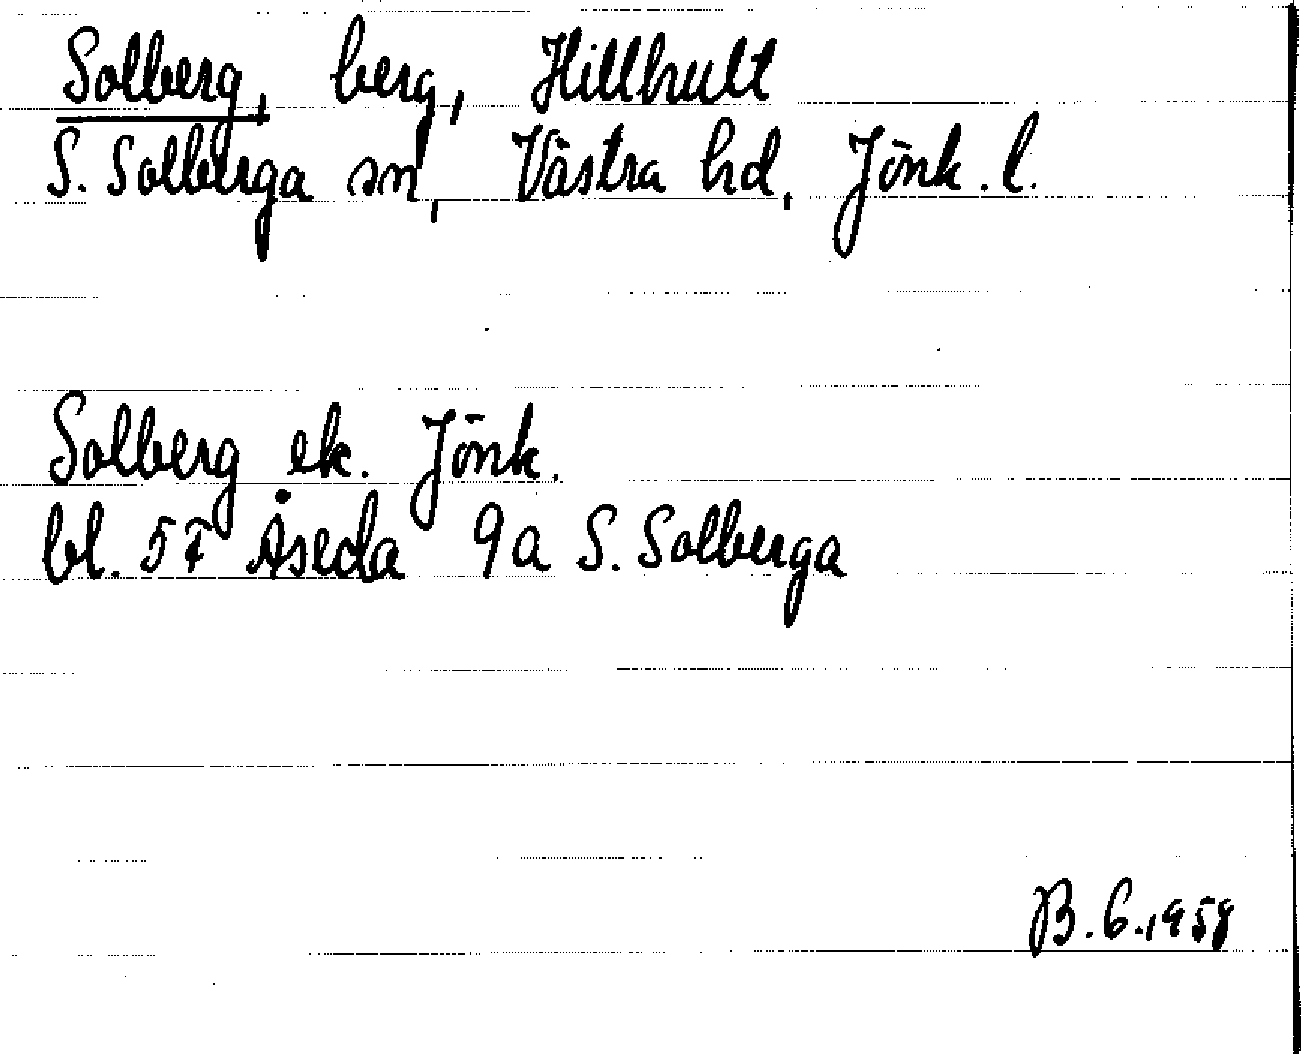 Solberg, berg, Hillhult
S. Solberga sn, Västra hd, Jönk. l.
Solberg ek. Jönk.
bl. 5F Åseda 9a S. Solberga
B. G. 1958